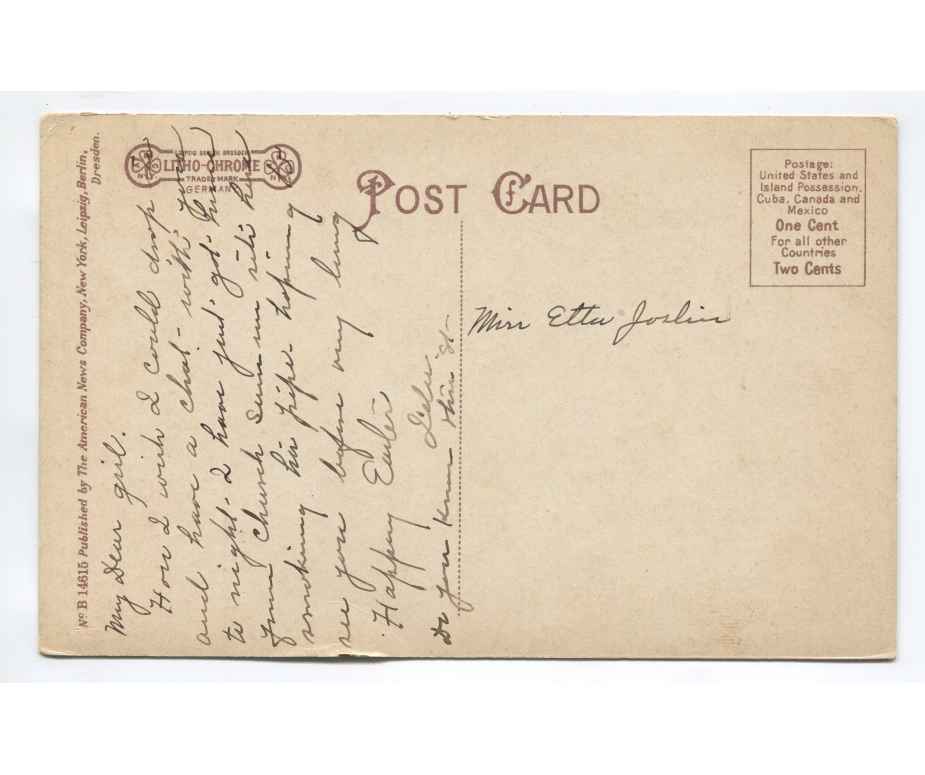 No B 14615 Published by The American News Company, New York, Leipzig, Berlin,
Dresden.
LEIPZIG BERLIN DRESDEN
LITHO-CHROME
TRADE MARK
GERMANY
POST CARD
Postage:
United States and
Island Possession,
Cuba, Canada and
Mexico
One Cent
For all other
Countries
Two Cents
My Dear girl.
How I wish I could drop in
and have a chat with you
to night - I have just got home
from Church Summun sits here
smoking his pipe - hoping to
see you before very long
Happy Easter
Do you know this st
Miss Etta Joslin